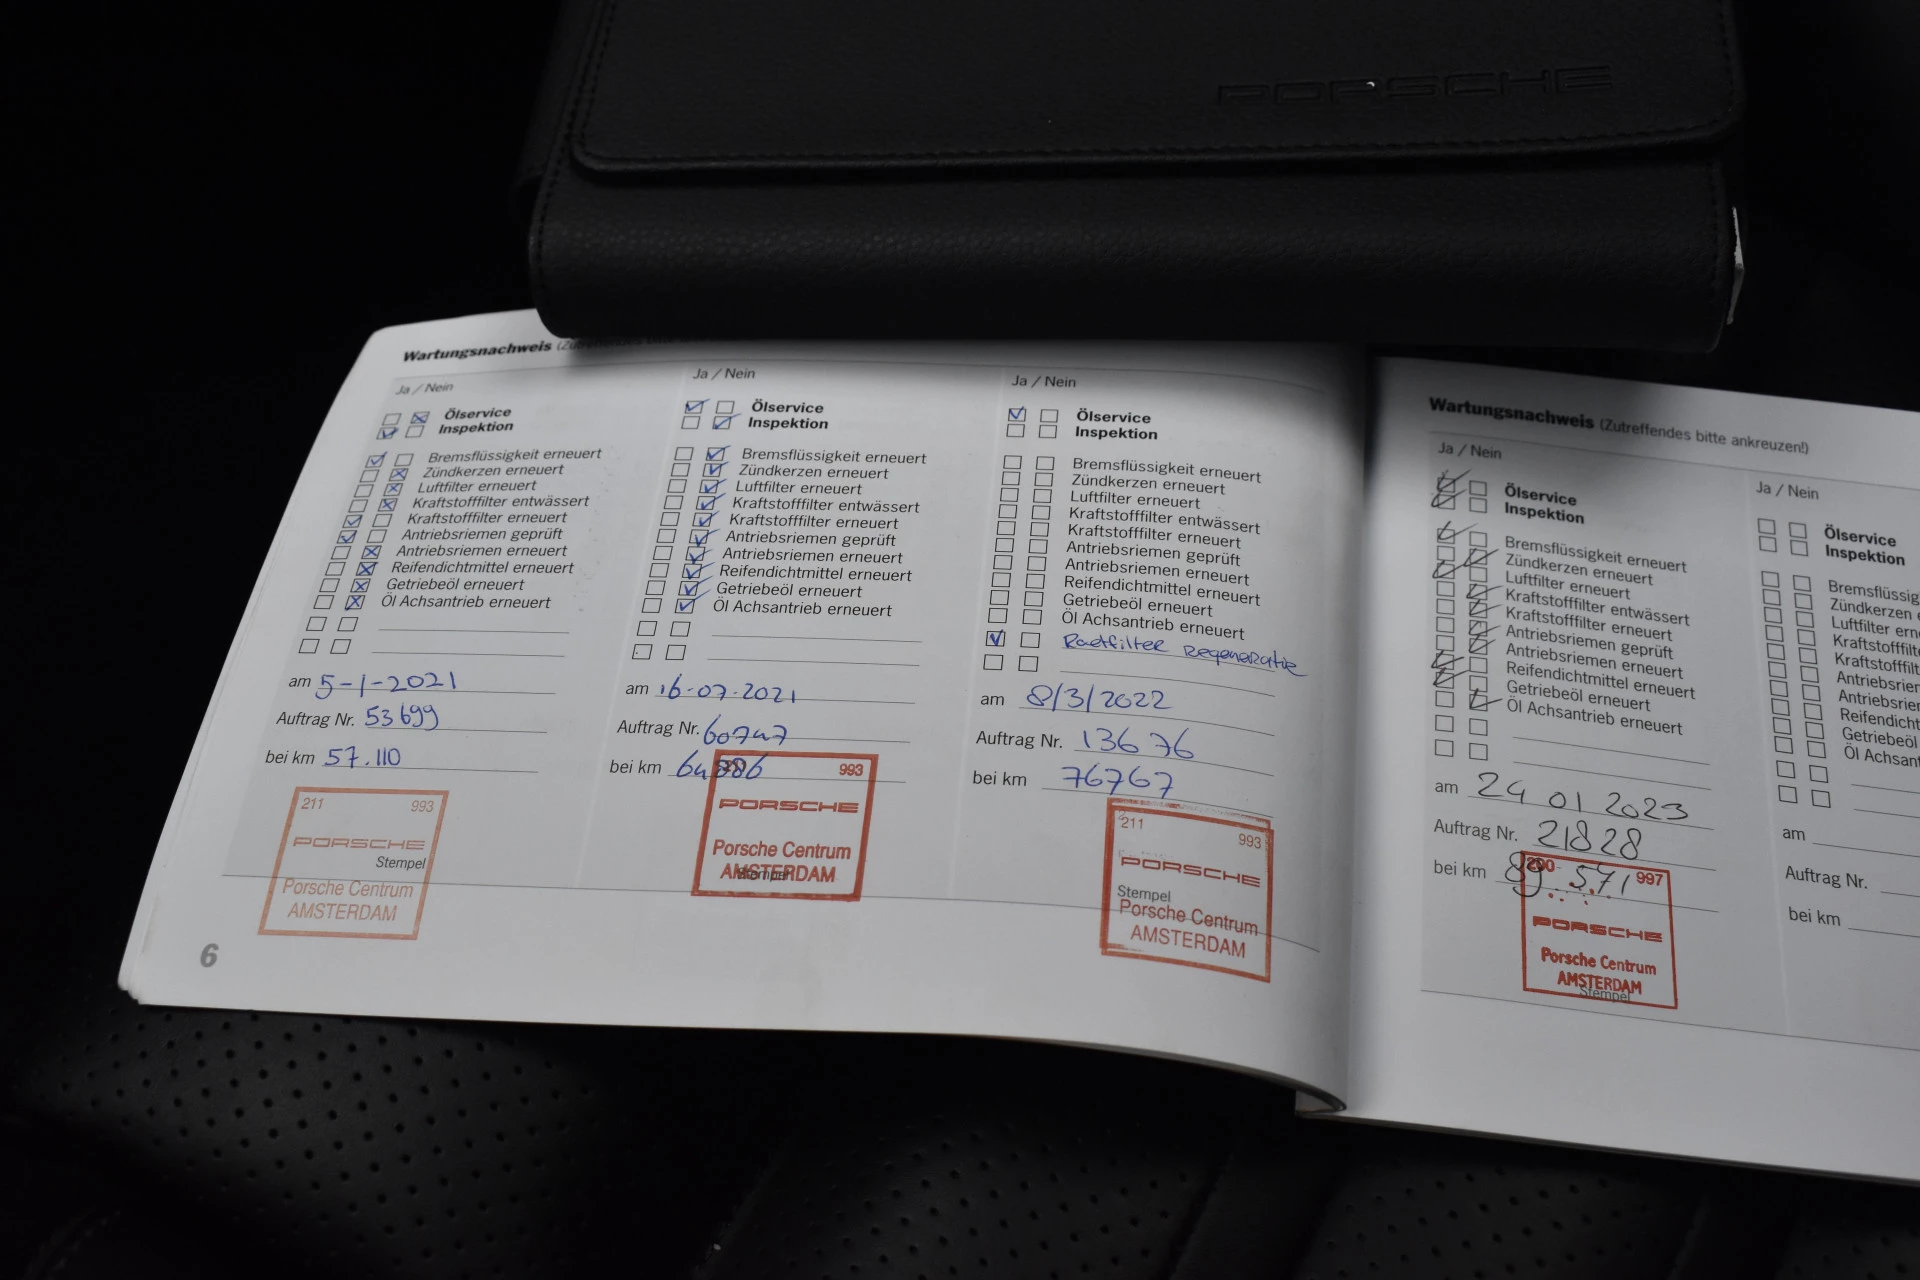 PORSCHE
Wartungsnachweis
Ja / Nein
Ölservice
Inspektion
Bremsflüssigkeit erneuert
Zündkerzen erneuert
Luftfilter erneuert
Kraftstofffilter entwässert
Kraftstofffilter erneuert
Antriebsriemen geprüft
Antriebsriemen erneuert
Reifendichtmittel erneuert
Getriebeöl erneuert
Öl Achsantrieb erneuert
am 5-1-2021
Auftrag Nr. 53699
bei km 57.110
211 993
PORSCHE
Stempel
Porsche Centrum
AMSTERDAM
6
Ja / Nein
Ölservice
Inspektion
Bremsflüssigkeit erneuert
Zündkerzen erneuert
Luftfilter erneuert
Kraftstofffilter entwässert
Kraftstofffilter erneuert
Antriebsriemen geprüft
Antriebsriemen erneuert
Reifendichtmittel erneuert
Getriebeöl erneuert
Öl Achsantrieb erneuert
am 16-07-2021
Auftrag Nr. 60747
bei km
993
PORSCHE
Porsche Centrum
AMSTERDAM
Stempel
Ja / Nein
Ölservice
Inspektion
Bremsflüssigkeit erneuert
Zündkerzen erneuert
Luftfilter erneuert
Kraftstofffilter entwässert
Kraftstofffilter erneuert
Antriebsriemen geprüft
Antriebsriemen erneuert
Reifendichtmittel erneuert
Getriebeöl erneuert
Öl Achsantrieb erneuert
Roetfilter regeneratie
am 8/3/2022
Auftrag Nr. 13676
bei km 76767
211 993
PORSCHE
Stempel
Porsche Centrum
AMSTERDAM
Wartungsnachweis (Zutreffendes bitte ankreuzen!)
Ja / Nein
Ölservice
Inspektion
Bremsflüssigkeit erneuert
Zündkerzen erneuert
Luftfilter erneuert
Kraftstofffilter entwässert
Kraftstofffilter erneuert
Antriebsriemen geprüft
Antriebsriemen erneuert
Reifendichtmittel erneuert
Getriebeöl erneuert
Öl Achsantrieb erneuert
am 24 01 2023
Auftrag Nr. 21828
bei km 89.571
997
PORSCHE
Porsche Centrum
AMSTERDAM
Stempel
Ja / Nein
Ölservice
Inspektion
Zündkerzen
am
Auftrag Nr.
bei km